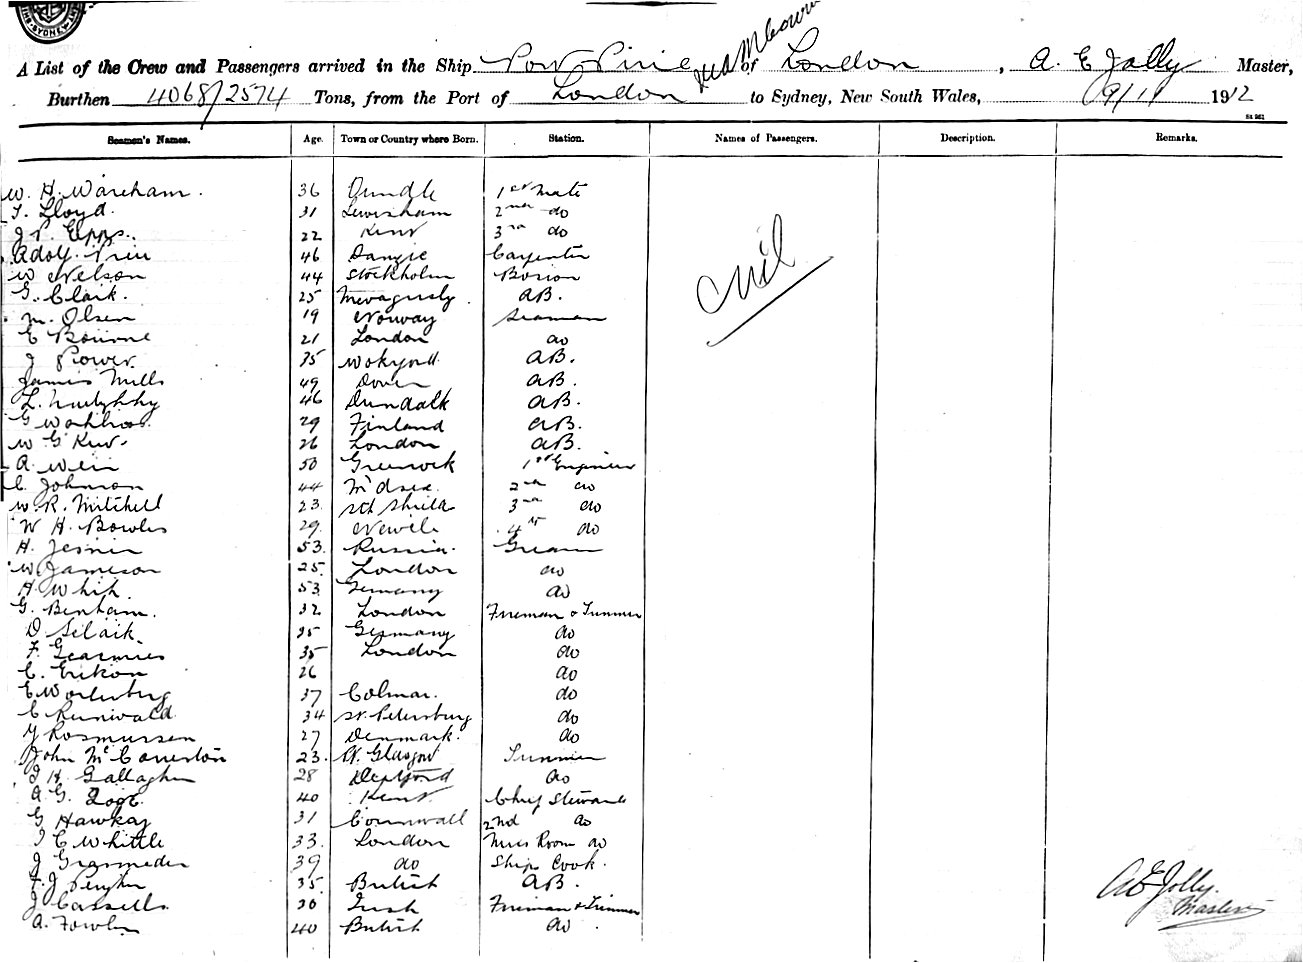 SYDNEY
A List of the Crew and Passengers arrived in the Ship Port Pirie of London, A. E Jolly Master,
Burthen 4068/2574 Tons, from the Port of London to Sydney, New South Wales, 9/11 1912
Seamen's Names. Age. Town or Country where Born. Station. Names of Passengers. Description. Remarks.
W. H. Wareham. 36 Oundle 1st Mate
T. Lloyd. 31 Lewisham 2nd do
J P. Epps. 22 Kent 3rd do
Adolf 46 Danzic Carpenter
W Nelson 44 Stockholm
G. Clark. 25 A.B.
M. Olsen 19 Norway Seaman
E Bourne 21 London do
J Power. 35 A.B.
James Mills 49 Dover A.B.
L. 46 Dundalk A.B.
G 29 Finland A.B.
W G 26 London A.B.
A. Weir 50 Greenock 1st Engineer
C. Johnson 44 2nd do
W. R. Mitchell 23. Sth Shields 3rd do
W H. Bowles 29. 4th do
H. 53. Russia.
W Jameson 25. London do
H White. 53 Germany do
G. Benham. 32 London Fireman & Trimmer
D 35 Germany do
F. 35 London do
C. Erikson 26 do
E 37 Colmar. do
C 34 St. Petersburg do
Y Rasmussen 27 Denmark. do
John 23. Pt. Glasgow Trimmer
J H. Gallagher 28 Deptford do
A. G. 40 Kent Chief Steward
G 31 Cornwall 2nd do
J C Whittle 33. London Mess Room do
J 39 do Ships Cook.
F. J 35. British A.B.
J Cassells 30 Irish Fireman & Trimmer
A. Fowler 40 British do
Nil
A E Jolly.
Master